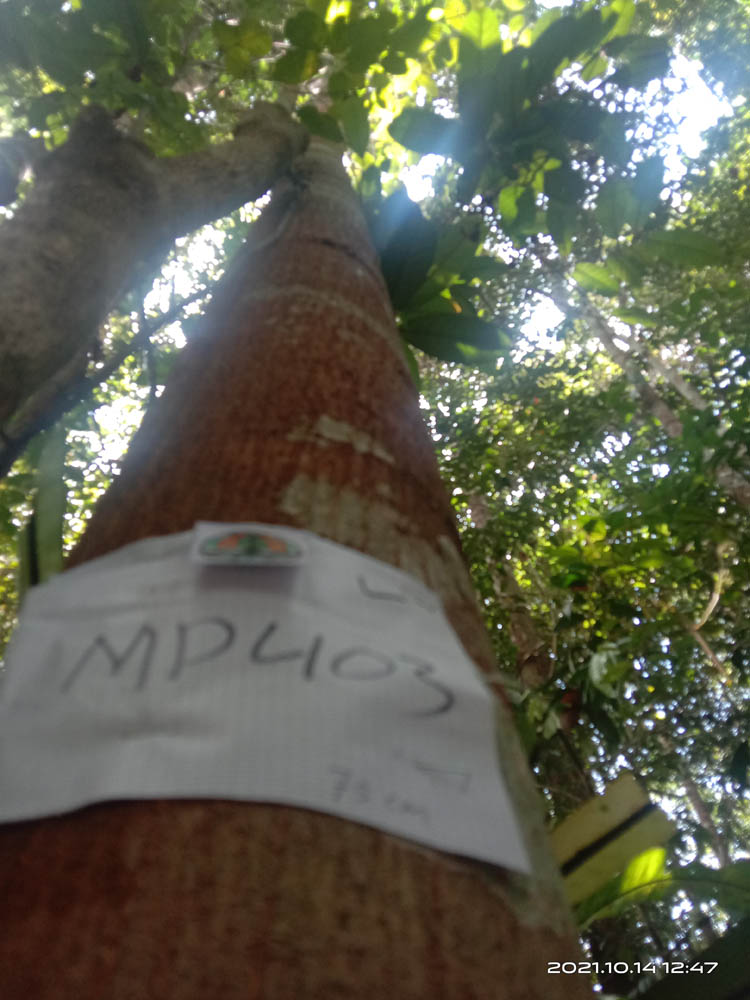 MP403
73 cm
2021.10.14 12:47